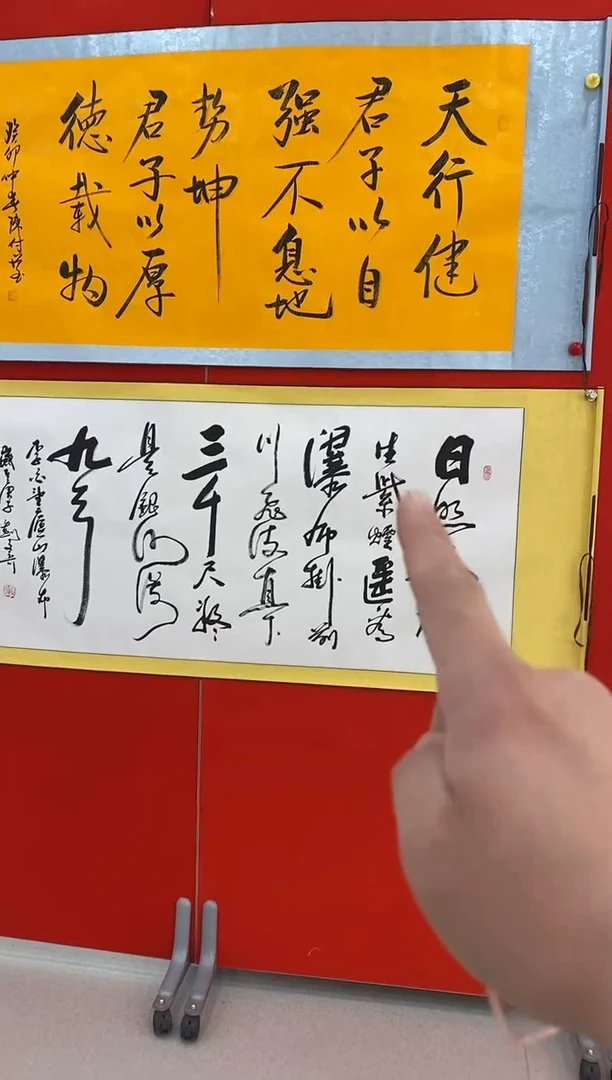 天行健
君子以自
强不息地
势坤
君子以厚
德載物
癸卯仲春
日照
生紫煙遥看
瀑布掛前
川飛流直下
三千尺疑
是銀河落
九天
李白望廬山瀑布